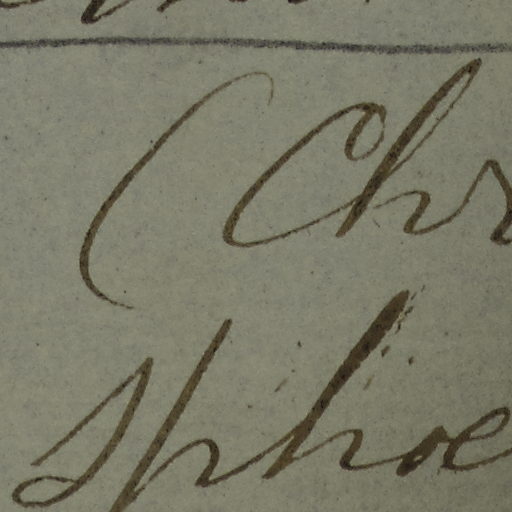 (Chr
sphoe